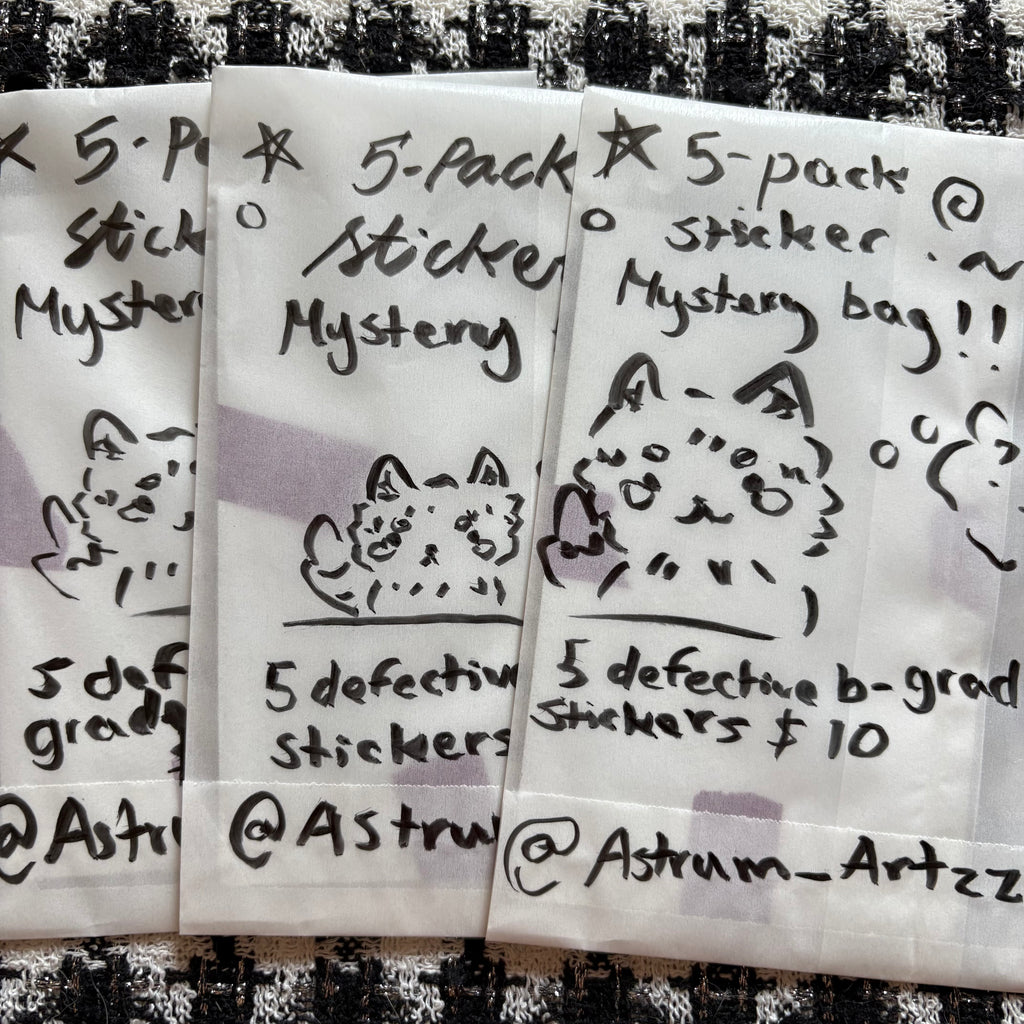 5-P
stick
Myster
5 def
grad
@Ast
5-Pack
sticker
Mystery
5 defectiv
stickers
@Astru
5-pack
sticker
Mystery bag!!
5 defective b-grad
stickers $10
@Astrum_Artzz